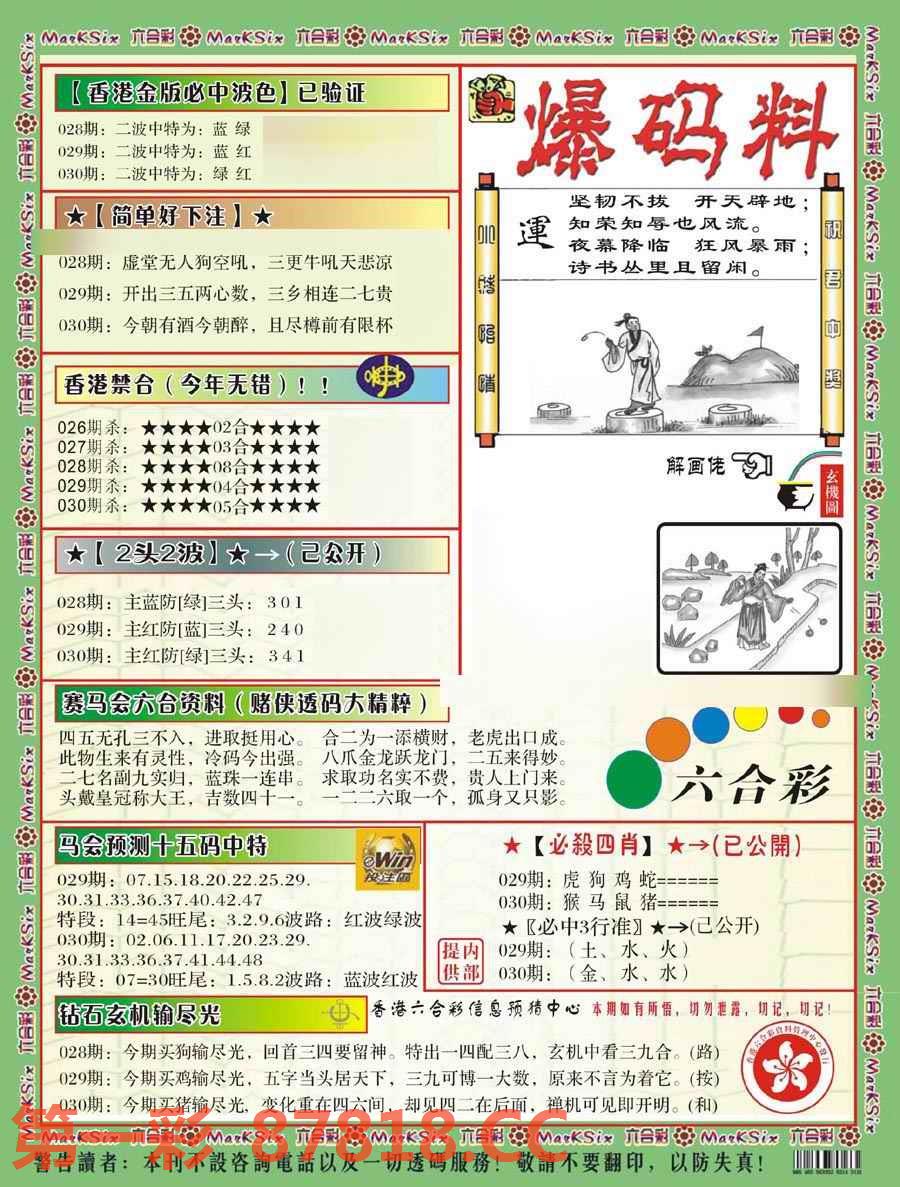 MarKSix 六合彩 MarKSix 六合彩 MarKSix 六合彩 MarKSix 六合彩 MarKSix 六合彩
【香港金版必中波色】已验证
028期：二波中特为：蓝 绿
029期：二波中特为：蓝 红
030期：二波中特为：绿 红
★【简单好下注】★
028期：虚堂无人狗空吼，三更牛吼天悲凉
029期：开出三五两心数，三乡相连二七贵
030期：今朝有酒今朝醉，且尽樽前有限杯
香港禁合（今年无错）！！
026期杀：★★★★02合★★★★
027期杀：★★★★03合★★★★
028期杀：★★★★08合★★★★
029期杀：★★★★04合★★★★
030期杀：★★★★05合★★★★
★【 2头2波】★→（已公开）
028期：主蓝防[绿]三头：3 0 1
029期：主红防[蓝]三头：2 4 0
030期：主红防[绿]三头：3 4 1
爆码料
運
坚韧不拔 开天辟地；
知荣知辱也风流。
夜幕降临 狂风暴雨；
诗书丛里且留闲。
祝君中奖
解画佬
玄機圖
赛马会六合资料（赌侠透码大精粹）
四五无孔三不入，进取挺用心。 合二为一添横财，老虎出口成。
此物生来有灵性，冷码今出强。 八爪金龙跃龙门，二五来得妙。
二七名副九实归，蓝珠一连串。 求取功名实不费，贵人上门来。
头戴皇冠称大王，吉数四十一。 一二二六取一个，孤身又只影。
六合彩
马会预测十五码中特
eWin
投注區
029期：07.15.18.20.22.25.29.
30.31.33.36.37.40.42.47
特段：14=45旺尾：3.2.9.6波路：红波绿波
030期：02.06.11.17.20.23.29.
30.31.33.36.37.41.44.48
特段：07=30旺尾：1.5.8.2波路：蓝波红波
★【必殺四肖】★→(已公開)
029期：虎 狗 鸡 蛇======
030期：猴 马 鼠 猪======
★〖必中3行准〗★→(已公开)
029期：（土、水、火）
030期：（金、水、水）
内部提供
钻石玄机输尽光
香港六合彩信息预猜中心 本期如有所悟，切勿泄露，切记，切记！
028期：今期买狗输尽光，回首三四要留神。特出一四配三八，玄机中看三九合。(路)
029期：今期买鸡输尽光，五字当头居天下，三九可博一大数，原来不言为着它。(按)
030期：今期买猪输尽光，变化重在四六间，却见四二在后面，禅机可见即开明。(和)
第一彩 87818.CC
MarKSix 六合彩 MarKSix 六合彩 MarKSix 六合彩 MarKSix 六合彩 MarKSix 六合彩
警告讀者：本刊不設咨詢電話以及一切透碼服務！敬請不要翻印，以防失真！